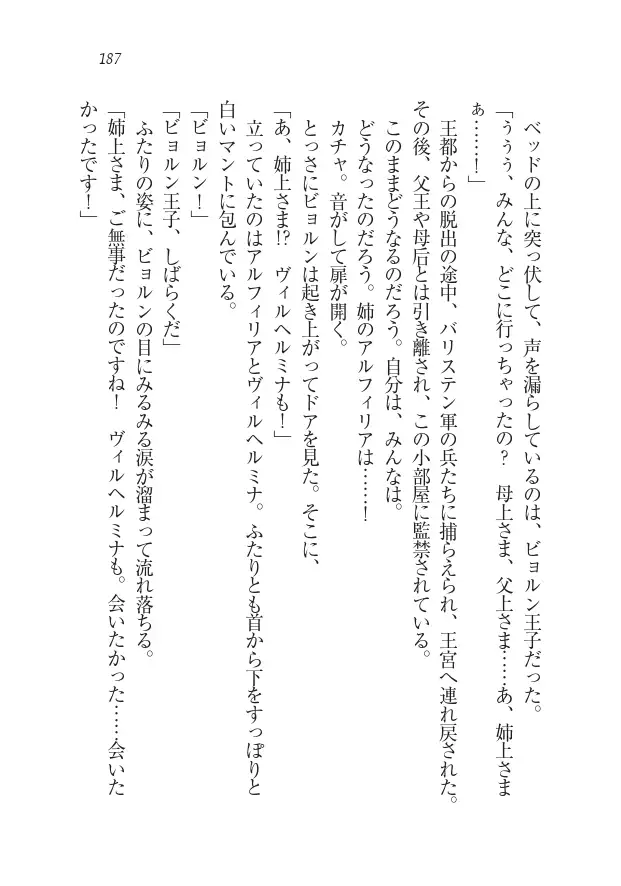 187
ベッドの上に突っ伏して、声を漏らしているのは、ビョルン王子だった。
「うぅぅ、みんな、どこに行っちゃったの？　母上さま、父上さま……あ、姉上さま
ぁ……！」
王都からの脱出の途中、バリステン軍の兵たちに捕らえられ、王宮へ連れ戻された。
その後、父王や母后とは引き離され、この小部屋に監禁されている。
このままどうなるのだろう。自分は、みんなは。
どうなったのだろう。姉のアルフィリアは……！
カチャ。音がして扉が開く。
とっさにビョルンは起き上がってドアを見た。そこに、
「あ、姉上さま!?　ヴィルヘルミナも！」
立っていたのはアルフィリアとヴィルヘルミナ。ふたりとも首から下をすっぽりと
白いマントに包んでいる。
「ビョルン！」
「ビョルン王子、しばらくだ」
ふたりの姿に、ビョルンの目にみるみる涙が溜まって流れ落ちる。
「姉上さま、ご無事だったのですね！　ヴィルヘルミナも。会いたかった……会いた
かったです！」